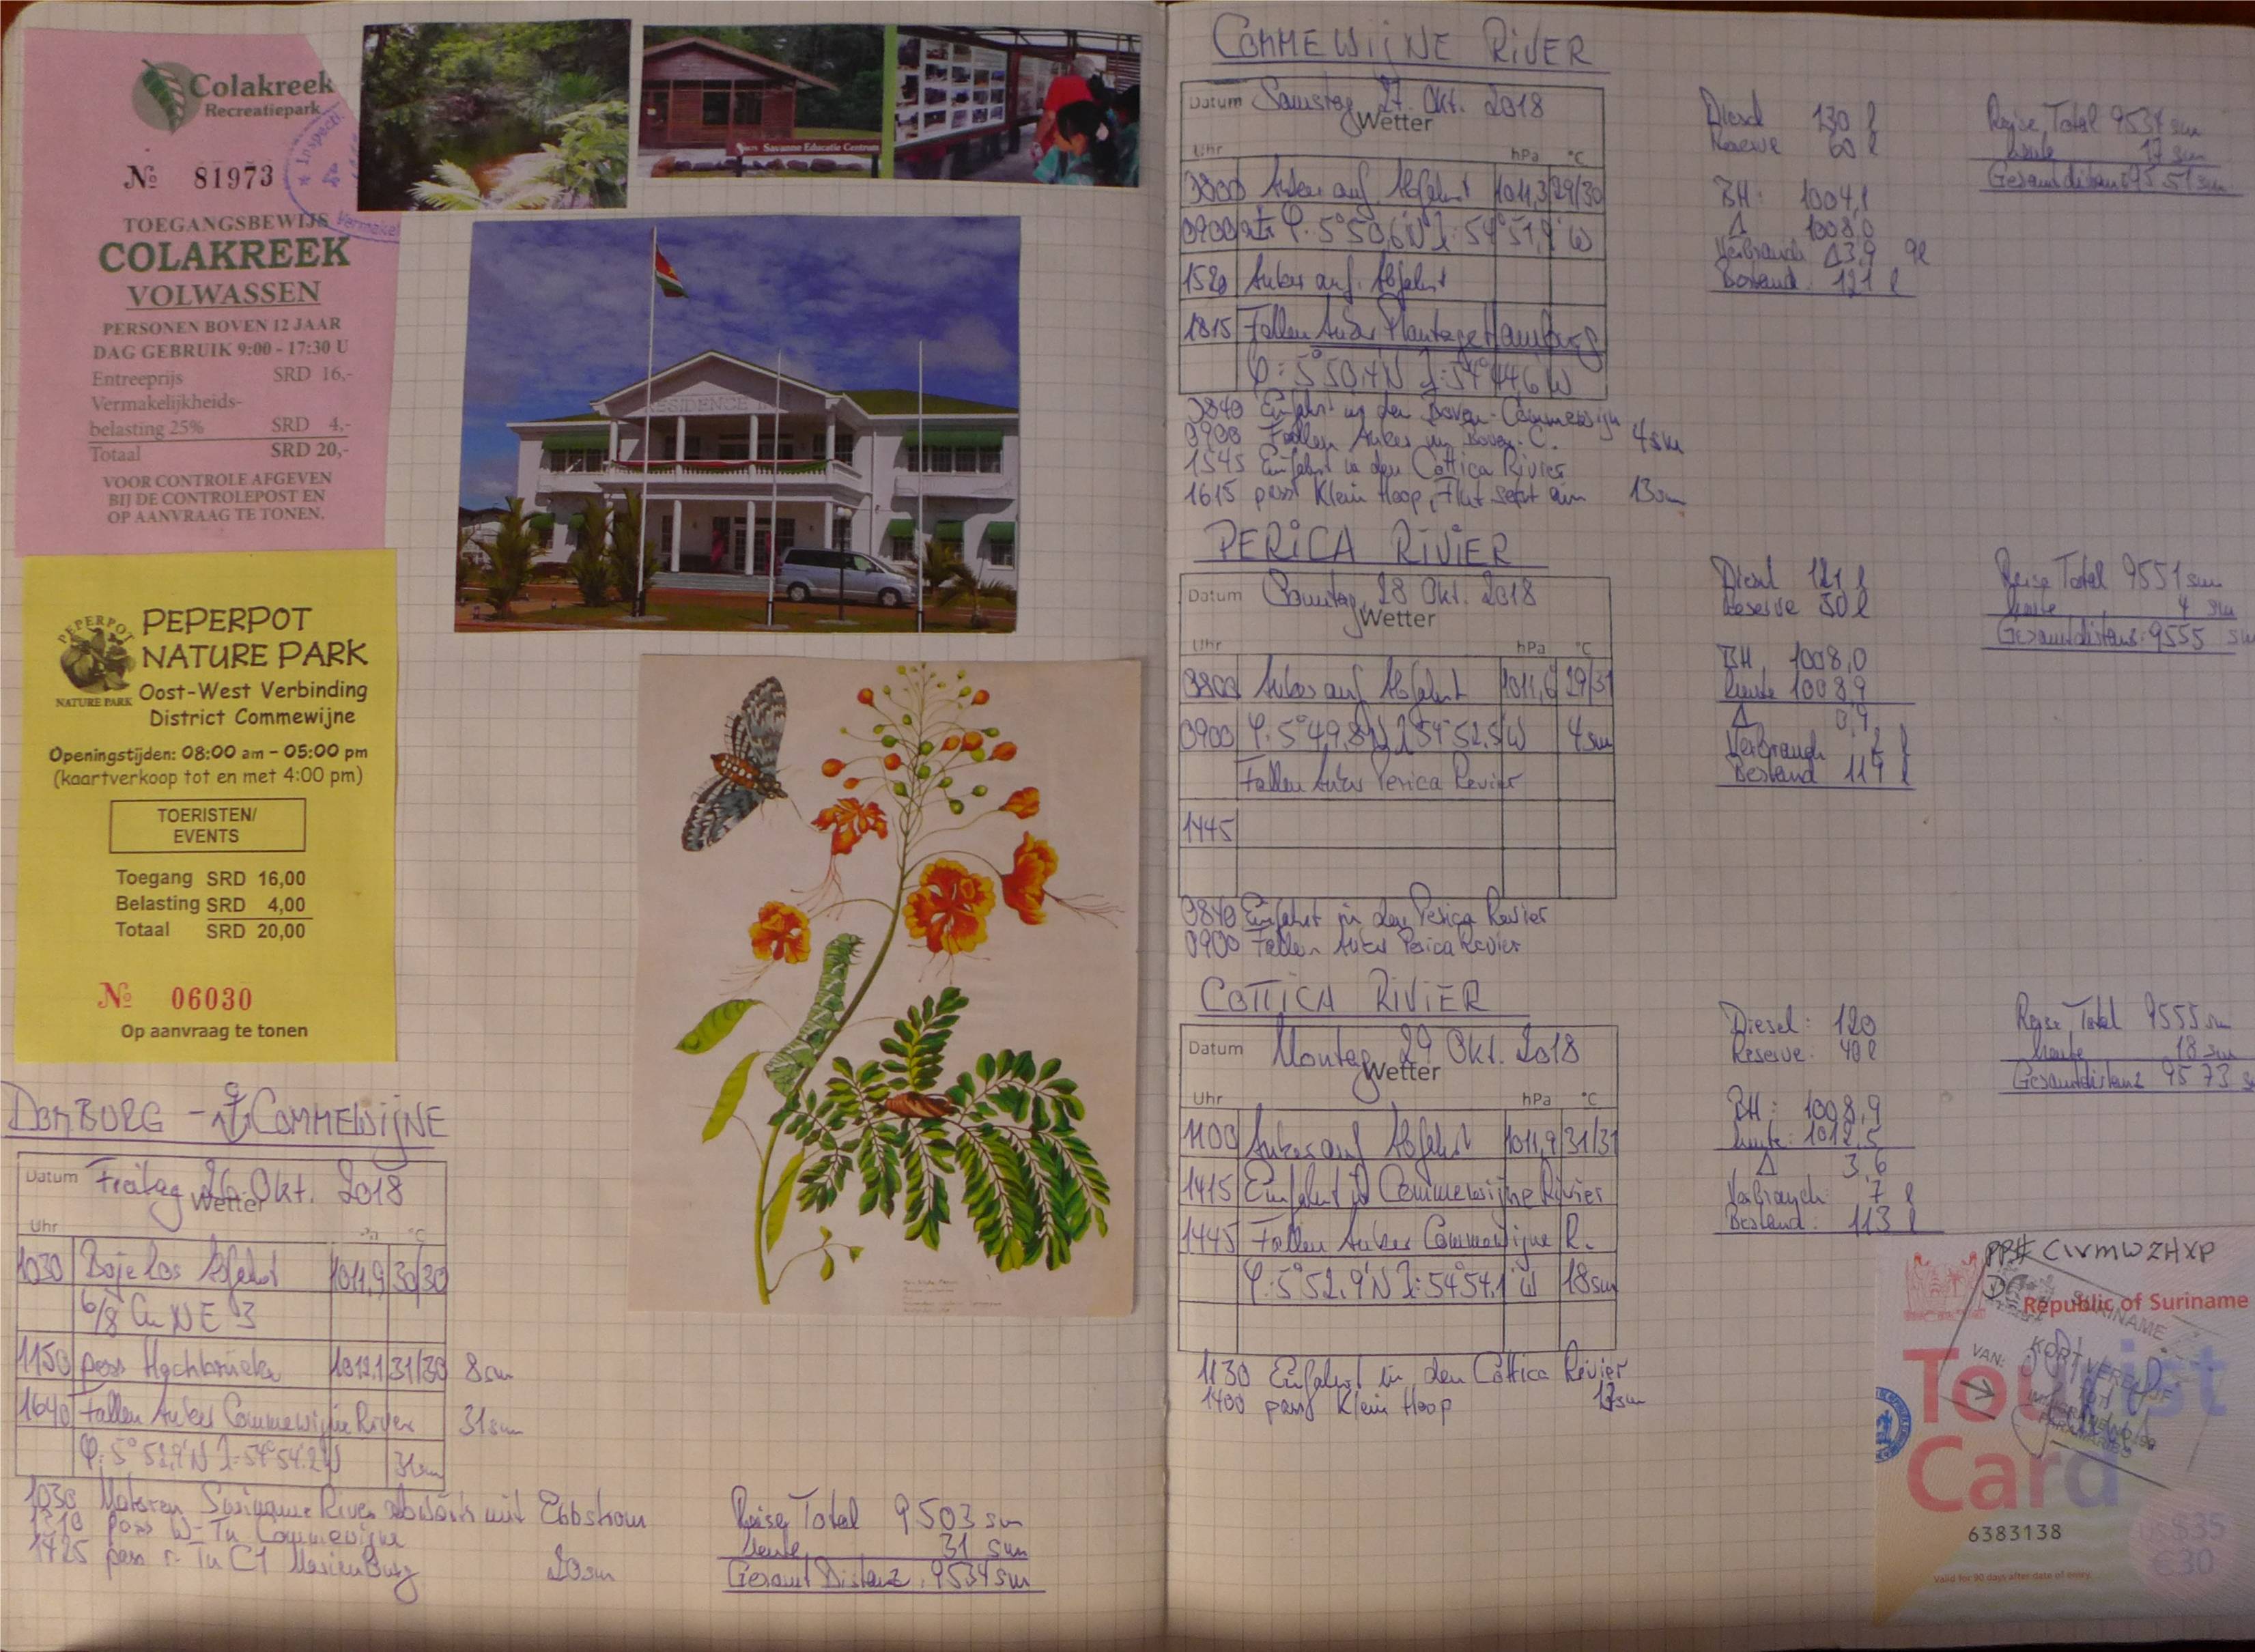 Colakreek
Recreatiepark
№ 81973
Inspect
Vermakel
TOEGANGSBEWIJS
COLAKREEK
VOLWASSEN
PERSONEN BOVEN 12 JAAR
DAG GEBRUIK 9:00 - 17:30 U
Entreeprijs SRD 16,-
Vermakelijkheids-
belasting 25% SRD 4,-
Totaal SRD 20,-
VOOR CONTROLE AFGEVEN
BIJ DE CONTROLEPOST EN
OP AANVRAAG TE TONEN.
Savanne Educatie Centrum
RESIDENCE
PEPERPOT
NATURE PARK
PEPERPOT
NATURE PARK
Oost-West Verbinding
District Commewijne
Openingstijden: 08:00 am - 05:00 pm
(kaartverkoop tot en met 4:00 pm)
TOERISTEN/
EVENTS
Toegang SRD 16,00
Belasting SRD 4,00
Totaal SRD 20,00
№ 06030
Op aanvraag te tonen
DOMBURG - COMMEWIJNE
Datum Freitag 26. Okt. 2018
Wetter
Uhr °C
1030 Boje los Abfahrt 1011,9 30/30
6/8 Cu NE 3
1150 pass Hochbrücke 1012,1 31/30 8sm
1640 Fallen Anker Commewijne River 31sm
φ: 5°52,9'N λ: 54°54.2W 31sm
1030 Motoren Suriname River abwärts mit Ebbstrom
1310 pass W-Tn Commewijne
1425 pass r-Tn C1 Marienburg 20sm
Reise Total 9503 sm
heute 31 sm
Gesamt Distanz 9534sm
COMMEWIJNE RIVER
Datum Samstag 27. Okt. 2018
Wetter
Uhr hPa °C
0800 Anker auf Abfahrt 1011,3 29/30
0900 φ: 5°50,6'N λ: 54°51,9'W
1520 Anker auf. Abfahrt
1815 Fallen Anker Plantage Hamburg
φ: 5°50,4'N λ: 54°44,6'W
0840 Einfahrt in den Boven-Commewijn
0900 Fallen Anker im Boven C. 4sm
1545 Einfahrt in den Cottica Rivier
1615 pass Klein Hoop, Flut setzt ein 13sm
Diesel 130 l
Reserve 60 l
BH: 1004,1
Δ 1008,0
Verbrauch Δ3,9 9l
Bestand: 121 l
Reise Total 9534 sm
heute 17 sm
Gesamtdistanz 9551 sm
PERICA RIVIER
Datum Sonntag 28 Okt. 2018
Wetter
Uhr hPa °C
0800 Anker auf Abfahrt 1011,6 29/31
0900 φ: 5°49,8'N λ 54°52,5'W 4sm
Fallen Anker Perica Revier
1445
0840 Einfahrt in den Perica Revier
0900 Fallen Anker Perica Revier
Diesel 121 l
Reserve 50 l
BH 1008,0
heute 1008,9
Δ 0,9
Verbrauch l
Bestand l
Reise Total 9551 sm
heute 4 sm
Gesamtdistanz: 9555 sm
COTTICA RIVIER
Datum Montag 29 Okt. 2018
Wetter
Uhr hPa °C
1100 Anker auf Abfahrt 1011,9 31/31
1415 Einfahrt in Commewijne Rivier
1445 Fallen Anker Commewijne R.
φ: 5°52,9'N λ: 54°54,1'W 18sm
1130 Einfahrt in den Cottica Revier
1400 pass Klein Hoop 17sm
Diesel: 120
Reserve: 40 l
BH: 1008,9
heute: 1012,5
Δ 3,6
Verbrauch: 7 l
Bestand: 113 l
Reise Total 9555 sm
heute 18 sm
Gesamtdistanz 9573 s
PP# C1VMWZHXP
Republic of Suriname
SURINAME
VAN:
KORT VERBLIJF
Tourist
Card
6383138
US$35
€30
Valid for 90 days after date of entry